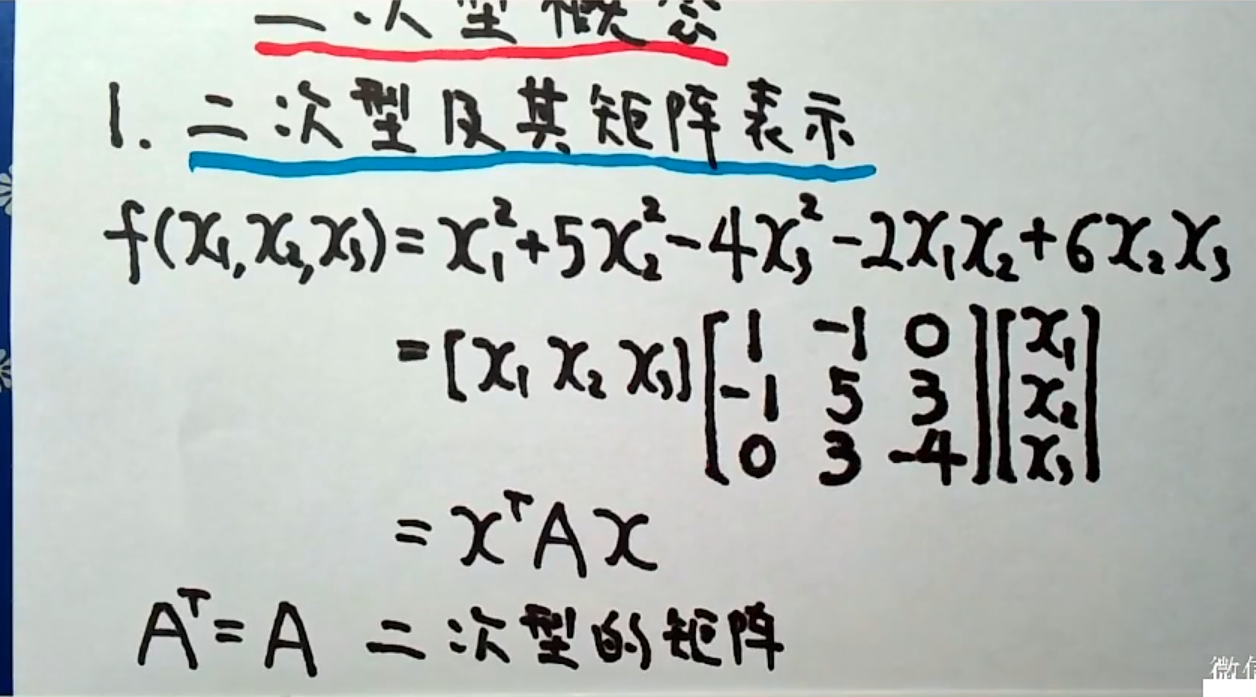 二次型概念
1. 二次型及其矩阵表示
f(x₁,x₂,x₃)=x₁²+5x₂²-4x₃²-2x₁x₂+6x₂x₃
=[x₁ x₂ x₃][1 -1 0][x₁]
[-1 5 3][x₂]
[0 3 -4][x₃]
=xᵀAx
Aᵀ=A 二次型的矩阵
微信